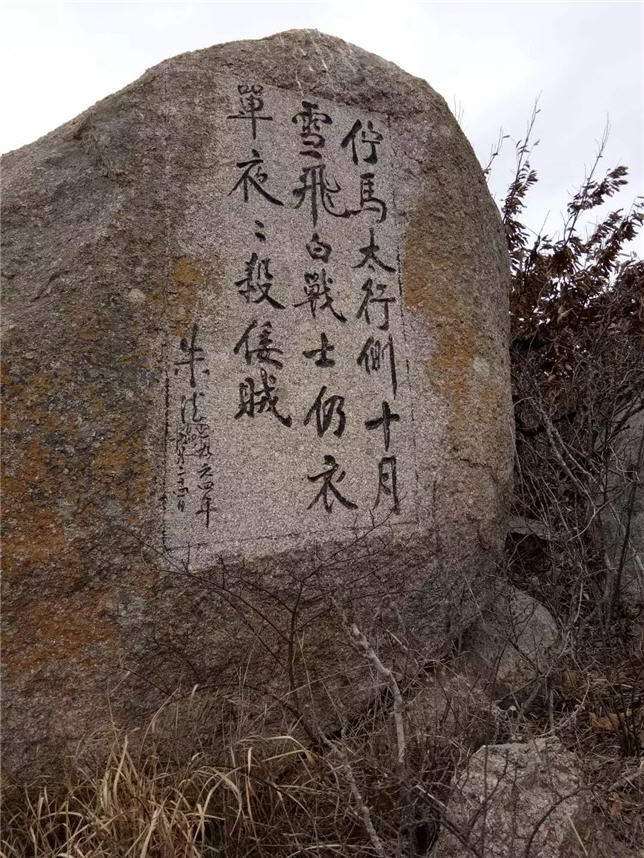 佇馬太行側十月
雪飛白戰士仍衣
單夜〻殺倭賊
朱德